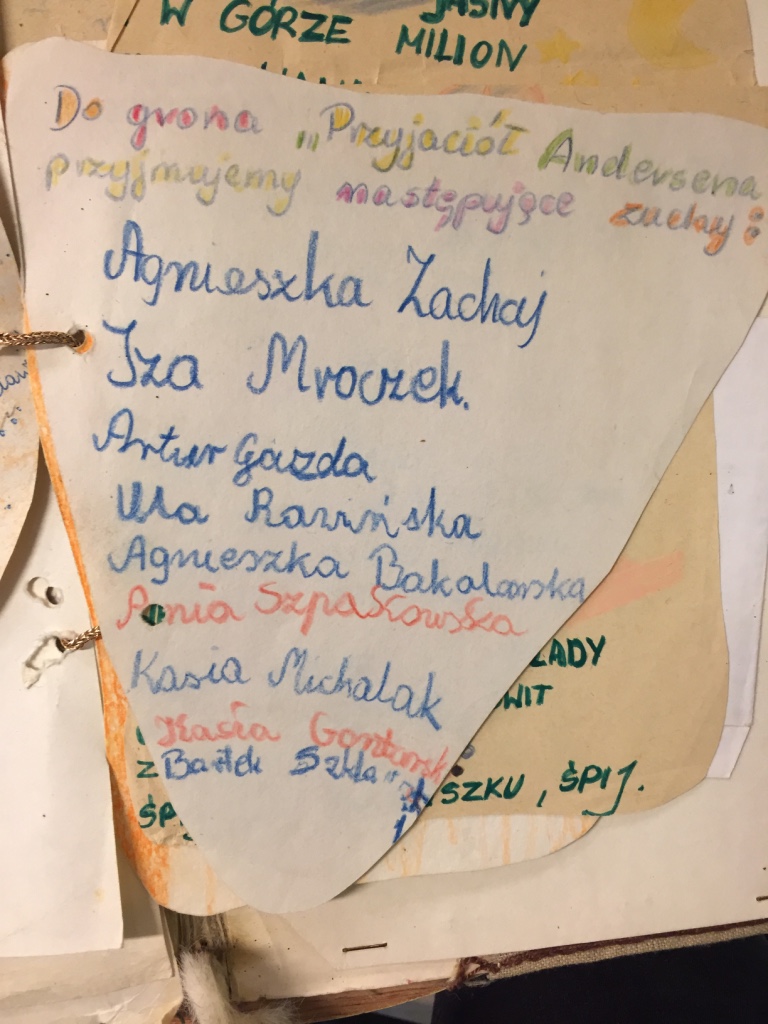 JASNY
W GÓRZE MILION
Do grona „Przyjaciół Andersena
przyjmujemy następujące zuchy:
Agnieszka Zachaj
Iza Mroczek.
Artur Gazda
Ula Rawińska
Agnieszka Bakalarska
Ania Szpakowska
Kasia Michalak
Kasia
Bartek
SZKU, ŚPIJ.